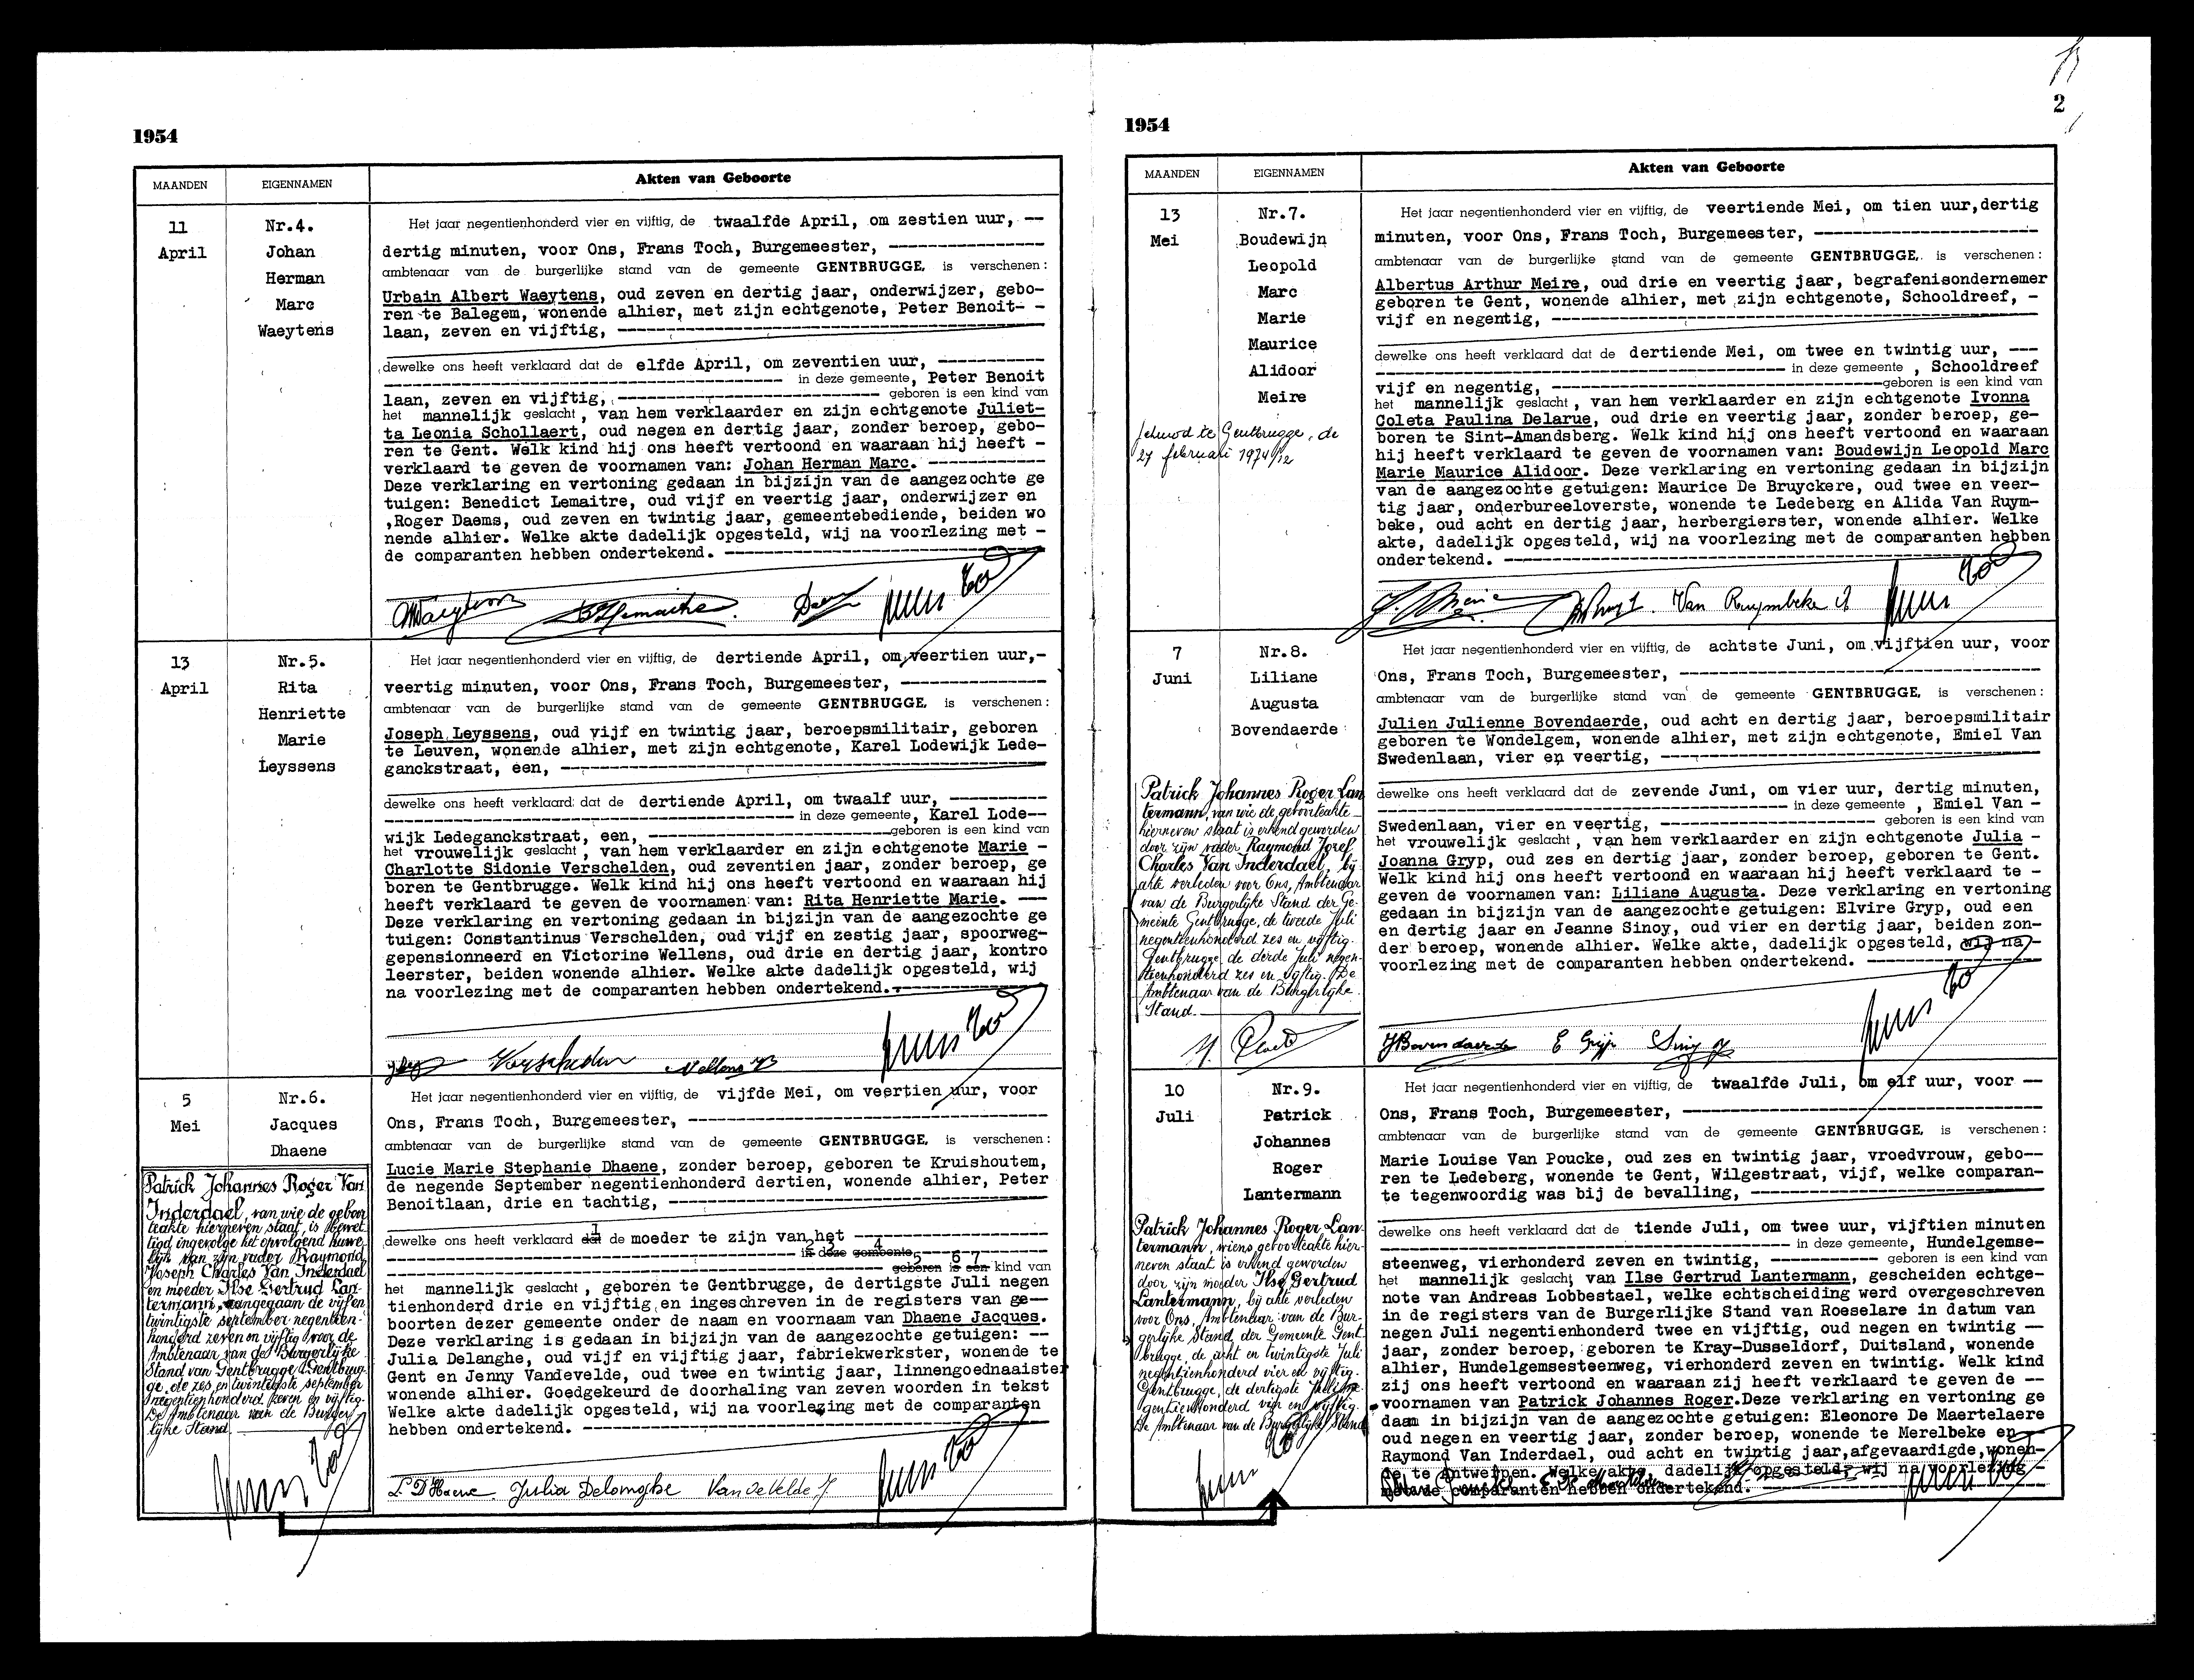 1954
MAANDEN
EIGENNAMEN
Akten van Geboorte
11
April
Nr.4.
Johan
Herman
Marc
Waeytens
Het jaar negentienhonderd vier en vijftig, de twaalfde April, om zestien uur, --
dertig minuten, voor Ons, Frans Toch, Burgemeester, ----------------
ambtenaar van de burgerlijke stand van de gemeente GENTBRUGGE, is verschenen:
Urbain Albert Waeytens, oud zeven en dertig jaar, onderwijzer, gebo-
ren te Balegem, wonende alhier, met zijn echtgenote, Peter Benoit- -
laan, zeven en vijftig, ----------------
dewelke ons heeft verklaard dat de elfde April, om zeventien uur, -----------
---------------- in deze gemeente, Peter Benoit
laan, zeven en vijftig, ---------------- geboren is een kind van
het mannelijk geslacht, van hem verklaarder en zijn echtgenote Juliet-
ta Leonia Schollaert, oud negen en dertig jaar, zonder beroep, gebo-
ren te Gent. Welk kind hij ons heeft vertoond en waaraan hij heeft -
verklaard te geven de voornamen van: Johan Herman Marc. ------------
Deze verklaring en vertoning gedaan in bijzijn van de aangezochte ge
tuigen: Benedict Lemaitre, oud vijf en veertig jaar, onderwijzer en
,Roger Daems, oud zeven en twintig jaar, gemeentebediende, beiden wo
nende alhier. Welke akte dadelijk opgesteld, wij na voorlezing met -
de comparanten hebben ondertekend. ----------------
13
April
Nr.5.
Rita
Henriette
Marie
Leyssens
Het jaar negentienhonderd vier en vijftig, de dertiende April, om veertien uur,-
veertig minuten, voor Ons, Frans Toch, Burgemeester, ---------------
ambtenaar van de burgerlijke stand van de gemeente GENTBRUGGE, is verschenen:
Joseph Leyssens, oud vijf en twintig jaar, beroepsmilitair, geboren
te Leuven, wonende alhier, met zijn echtgenote, Karel Lodewijk Lede-
ganckstraat, een, ----------------
dewelke ons heeft verklaard dat de dertiende April, om twaalf uur, ----------
---------------- in deze gemeente, Karel Lode--
wijk Ledeganckstraat, een, ----------------geboren is een kind van
het vrouwelijk geslacht, van hem verklaarder en zijn echtgenote Marie -
Charlotte Sidonie Verschelden, oud zeventien jaar, zonder beroep, ge
boren te Gentbrugge. Welk kind hij ons heeft vertoond en waaraan hij
heeft verklaard te geven de voornamen van: Rita Henriette Marie. ---
Deze verklaring en vertoning gedaan in bijzijn van de aangezochte ge
tuigen: Constantinus Verschelden, oud vijf en zestig jaar, spoorweg-
gepensionneerd en Victorine Wellens, oud drie en dertig jaar, kontro
leerster, beiden wonende alhier. Welke akte dadelijk opgesteld, wij
na voorlezing met de comparanten hebben ondertekend.----------------
Verschelden
5
Mei
Nr.6.
Jacques
Dhaene
Patrick Johannes Roger Van
Inderdael, van wie de geboor
teakte hierneven staat, is gewet
tigd ingevolge het opvolgend huwe-
lijk van zijn vader Raymond
Joseph Charles Van Inderdael
en moeder Ilse Gertrud Lan-
termann, aangegaan de vijfen
twintigste september negentien-
honderd zeven en vijftig voor de
Ambtenaar van de Burgerlijke
Stand van Gentbrugge. Gentbrug-
ge, de zes en twintigste september
negentienhonderd zeven en vijftig.
De Ambtenaar van de Burger
lijke Stand.
Het jaar negentienhonderd vier en vijftig, de vijfde Mei, om veertien uur, voor
Ons, Frans Toch, Burgemeester, ----------------
ambtenaar van de burgerlijke stand van de gemeente GENTBRUGGE, is verschenen:
Lucie Marie Stephanie Dhaene, zonder beroep, geboren te Kruishoutem,
de negende September negentienhonderd dertien, wonende alhier, Peter
Benoitlaan, drie en tachtig, ----------------
1
dewelke ons heeft verklaard dat de moeder te zijn van het ----------------
2 3 4
---------------- in deze gemeente ----------------
5 6 7
---------------- geboren is een kind van
het mannelijk geslacht, geboren te Gentbrugge, de dertigste Juli negen
tienhonderd drie en vijftig en ingeschreven in de registers van ge--
boorten dezer gemeente onder de naam en voornaam van Dhaene Jacques.
Deze verklaring is gedaan in bijzijn van de aangezochte getuigen: --
Julia Delanghe, oud vijf en vijftig jaar, fabriekwerkster, wonende te
Gent en Jenny Vandevelde, oud twee en twintig jaar, linnengoednaaister
wonende alhier. Goedgekeurd de doorhaling van zeven woorden in tekst
Welke akte dadelijk opgesteld, wij na voorlezing met de comparanten
hebben ondertekend. ----------------
L. D'Haene Julia Delanghe Van de Velde J
1954
2
MAANDEN
EIGENNAMEN
Akten van Geboorte
13
Mei
Nr.7.
Boudewijn
Leopold
Marc
Marie
Maurice
Alidoor
Meire
gehuwd te Gentbrugge, de
27 februari 1974/12
Het jaar negentienhonderd vier en vijftig, de veertiende Mei, om tien uur,dertig
minuten, voor Ons, Frans Toch, Burgemeester, ----------------
ambtenaar van de burgerlijke stand van de gemeente GENTBRUGGE, is verschenen:
Albertus Arthur Meire, oud drie en veertig jaar, begrafenisondernemer
geboren te Gent, wonende alhier, met zijn echtgenote, Schooldreef, -
vijf en negentig, ----------------
dewelke ons heeft verklaard dat de dertiende Mei, om twee en twintig uur, ---
---------------- in deze gemeente , Schooldreef
vijf en negentig, ----------------geboren is een kind van
het mannelijk geslacht, van hem verklaarder en zijn echtgenote Ivonna
Coleta Paulina Delarue, oud drie en veertig jaar, zonder beroep, ge-
boren te Sint-Amandsberg. Welk kind hij ons heeft vertoond en waaraan
hij heeft verklaard te geven de voornamen van: Boudewijn Leopold Marc
Marie Maurice Alidoor. Deze verklaring en vertoning gedaan in bijzijn
van de aangezochte getuigen: Maurice De Bruyckere, oud twee en veer-
tig jaar, onderbureeloverste, wonende te Ledeberg en Alida Van Ruym-
beke, oud acht en dertig jaar, herbergierster, wonende alhier. Welke
akte, dadelijk opgesteld, wij na voorlezing met de comparanten hebben
ondertekend. ----------------
Van Ruymbeke A
7
Juni
Nr.8.
Liliane
Augusta
Bovendaerde
Patrick Johannes Roger Lan
termann, van wie de geboorteakte
hierneven staat is erkend geworden
door zijn vader Raymond Jozef
Charles Van Inderdael, bij
akte verleden voor Ons, Ambtenaar
van de Burgerlijke Stand der Ge-
meente Gentbrugge, de tweede Juli
negentienhonderd zes en vijftig.
Gentbrugge, de derde Juli negen-
tienhonderd zes en vijftig. De
Ambtenaar van de Burgerlijke
Stand.
Het jaar negentienhonderd vier en vijftig, de achtste Juni, om vijftien uur, voor
Ons, Frans Toch, Burgemeester, ----------------
ambtenaar van de burgerlijke stand van de gemeente GENTBRUGGE, is verschenen:
Julien Julienne Bovendaerde, oud acht en dertig jaar, beroepsmilitair
geboren te Wondelgem, wonende alhier, met zijn echtgenote, Emiel Van
Swedenlaan, vier en veertig, ----------------
dewelke ons heeft verklaard dat de zevende Juni, om vier uur, dertig minuten,
---------------- in deze gemeente , Emiel Van -
Swedenlaan, vier en veertig, ---------------- geboren is een kind van
het vrouwelijk geslacht, van hem verklaarder en zijn echtgenote Julia -
Joanna Gryp, oud zes en dertig jaar, zonder beroep, geboren te Gent.
Welk kind hij ons heeft vertoond en waaraan hij heeft verklaard te -
geven de voornamen van: Liliane Augusta. Deze verklaring en vertoning
gedaan in bijzijn van de aangezochte getuigen: Elvire Gryp, oud een
en dertig jaar en Jeanne Sinoy, oud vier en dertig jaar, beiden zon-
der beroep, wonende alhier. Welke akte, dadelijk opgesteld, wij na-
voorlezing met de comparanten hebben ondertekend. ----------------
JBovendaerde E Gryp Sinoy J
10
Juli
Nr.9.
Patrick
Johannes
Roger
Lantermann
Patrick Johannes Roger Lan-
termann, wiens geboorteakte hier-
neven staat is erkend geworden
door zijn moeder Ilse Gertrud
Lantermann, bij akte verleden
voor Ons, Ambtenaar van de Bur-
gerlijke Stand der Gemeente Gent-
brugge, de acht en twintigste Juli
negentienhonderd vier en vijftig.
Gentbrugge, de dertigste Juli ne-
gentienhonderd vier en vijftig.
De Ambtenaar van de Burgerlijke Stand
Het jaar negentienhonderd vier en vijftig, de twaalfde Juli, om elf uur, voor --
Ons, Frans Toch, Burgemeester, ----------------
ambtenaar van de burgerlijke stand van de gemeente GENTBRUGGE, is verschenen:
Marie Louise Van Poucke, oud zes en twintig jaar, vroedvrouw, gebo--
ren te Ledeberg, wonende te Gent, Wilgestraat, vijf, welke comparan-
te tegenwoordig was bij de bevalling, ----------------
dewelke ons heeft verklaard dat de tiende Juli, om twee uur, vijftien minuten
---------------- in deze gemeente, Hundelgemse-
steenweg, vierhonderd zeven en twintig, --------- geboren is een kind van
het mannelijk geslacht, van Ilse Gertrud Lantermann, gescheiden echtge-
note van Andreas Lobbestael, welke echtscheiding werd overgeschreven
in de registers van de Burgerlijke Stand van Roeselare in datum van
negen Juli negentienhonderd twee en vijftig, oud negen en twintig --
jaar, zonder beroep, geboren te Kray-Dusseldorf, Duitsland, wonende
alhier, Hundelgemsesteenweg, vierhonderd zeven en twintig. Welk kind
zij ons heeft vertoond en waaraan zij heeft verklaard te geven de --
voornamen van Patrick Johannes Roger.Deze verklaring en vertoning ge
daan in bijzijn van de aangezochte getuigen: Eleonore De Maertelaere
oud negen en veertig jaar, zonder beroep, wonende te Merelbeke en --
Raymond Van Inderdael, oud acht en twintig jaar,afgevaardigde,wonen-
de te Antwerpen. Welke akte, dadelijk opgesteld, wij na voorlezing -
met de comparanten hebben ondertekend. ----------------